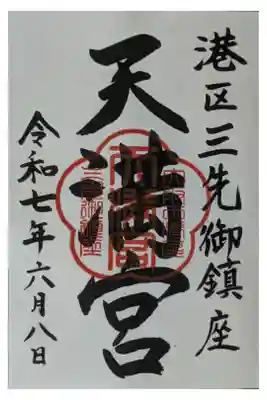 港区三先御鎮座
天満宮
令和七年六月八日